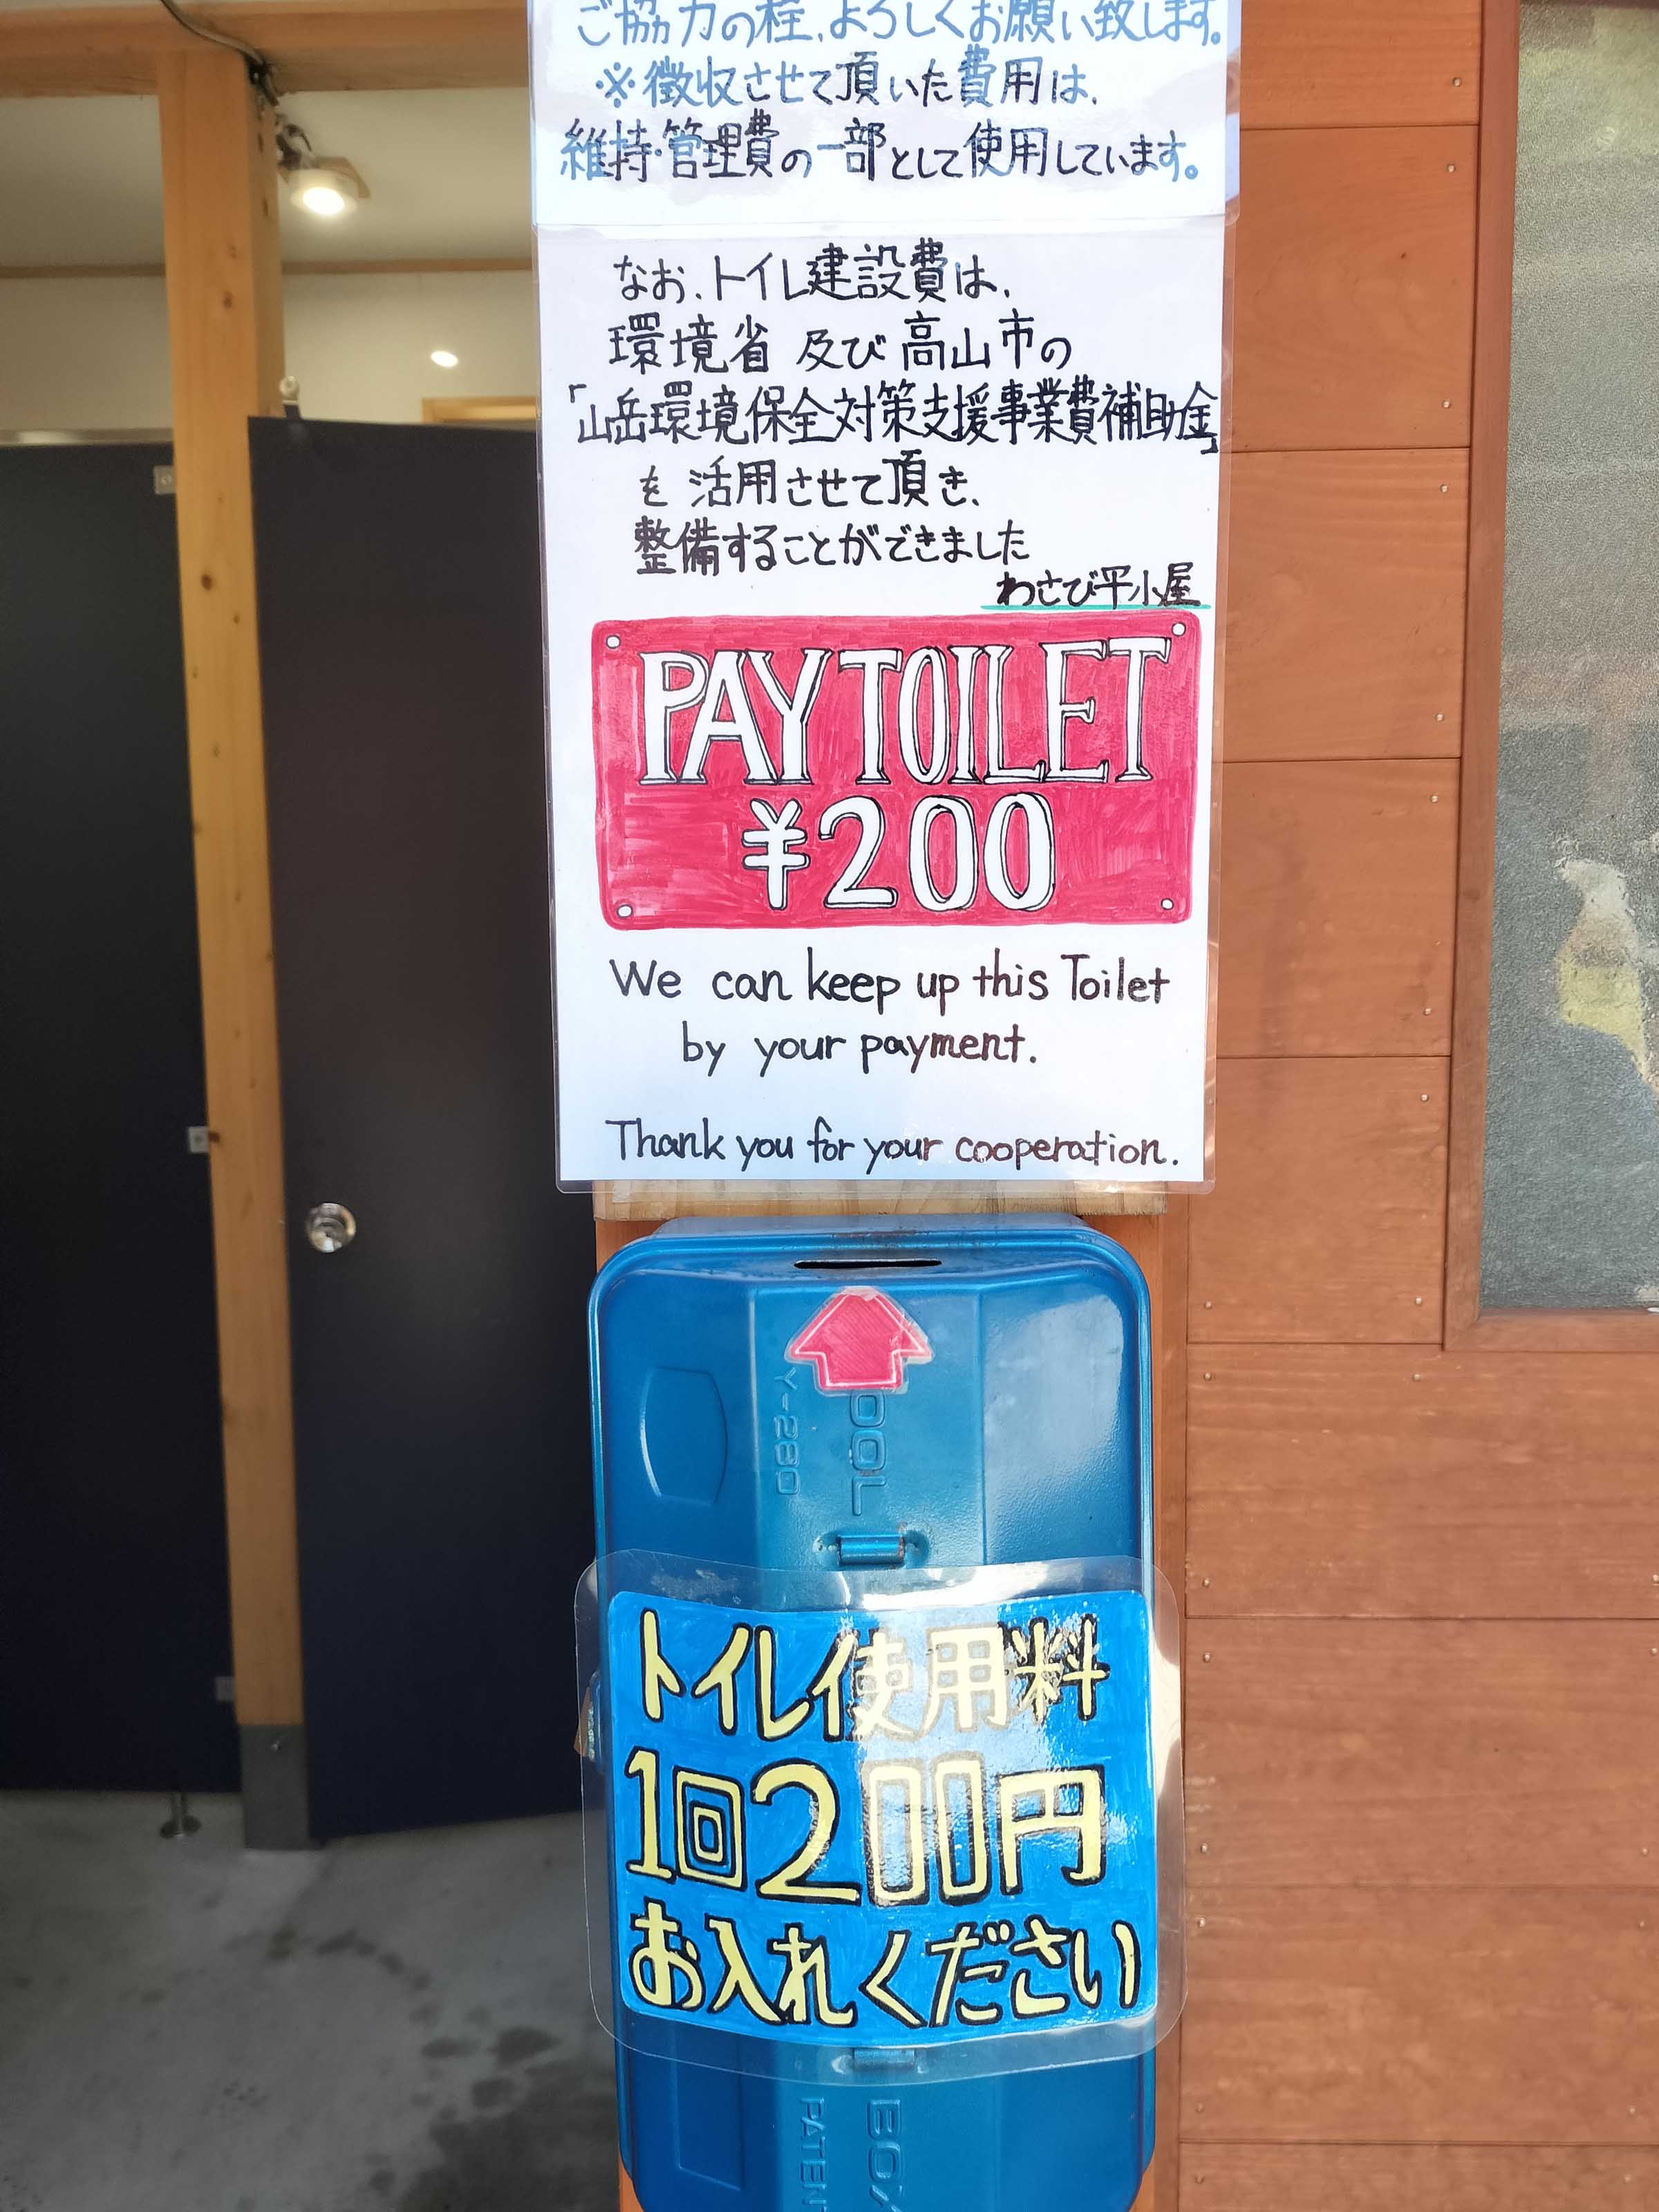 ご協力の程、よろしくお願い致します。
※徴収させて頂いた費用は、
維持・管理費の一部として使用しています。
なお、トイレ建設費は、
環境省 及び 高山市の
「山岳環境保全対策支援事業費補助金」
を 活用させて頂き、
整備することができました
わさび平小屋
PAY TOILET
¥200
We can keep up this Toilet
by your payment.
Thank you for your cooperation.
OOL
Y-280
トイレ使用料
1回200円
お入れください
BOX
PATEN